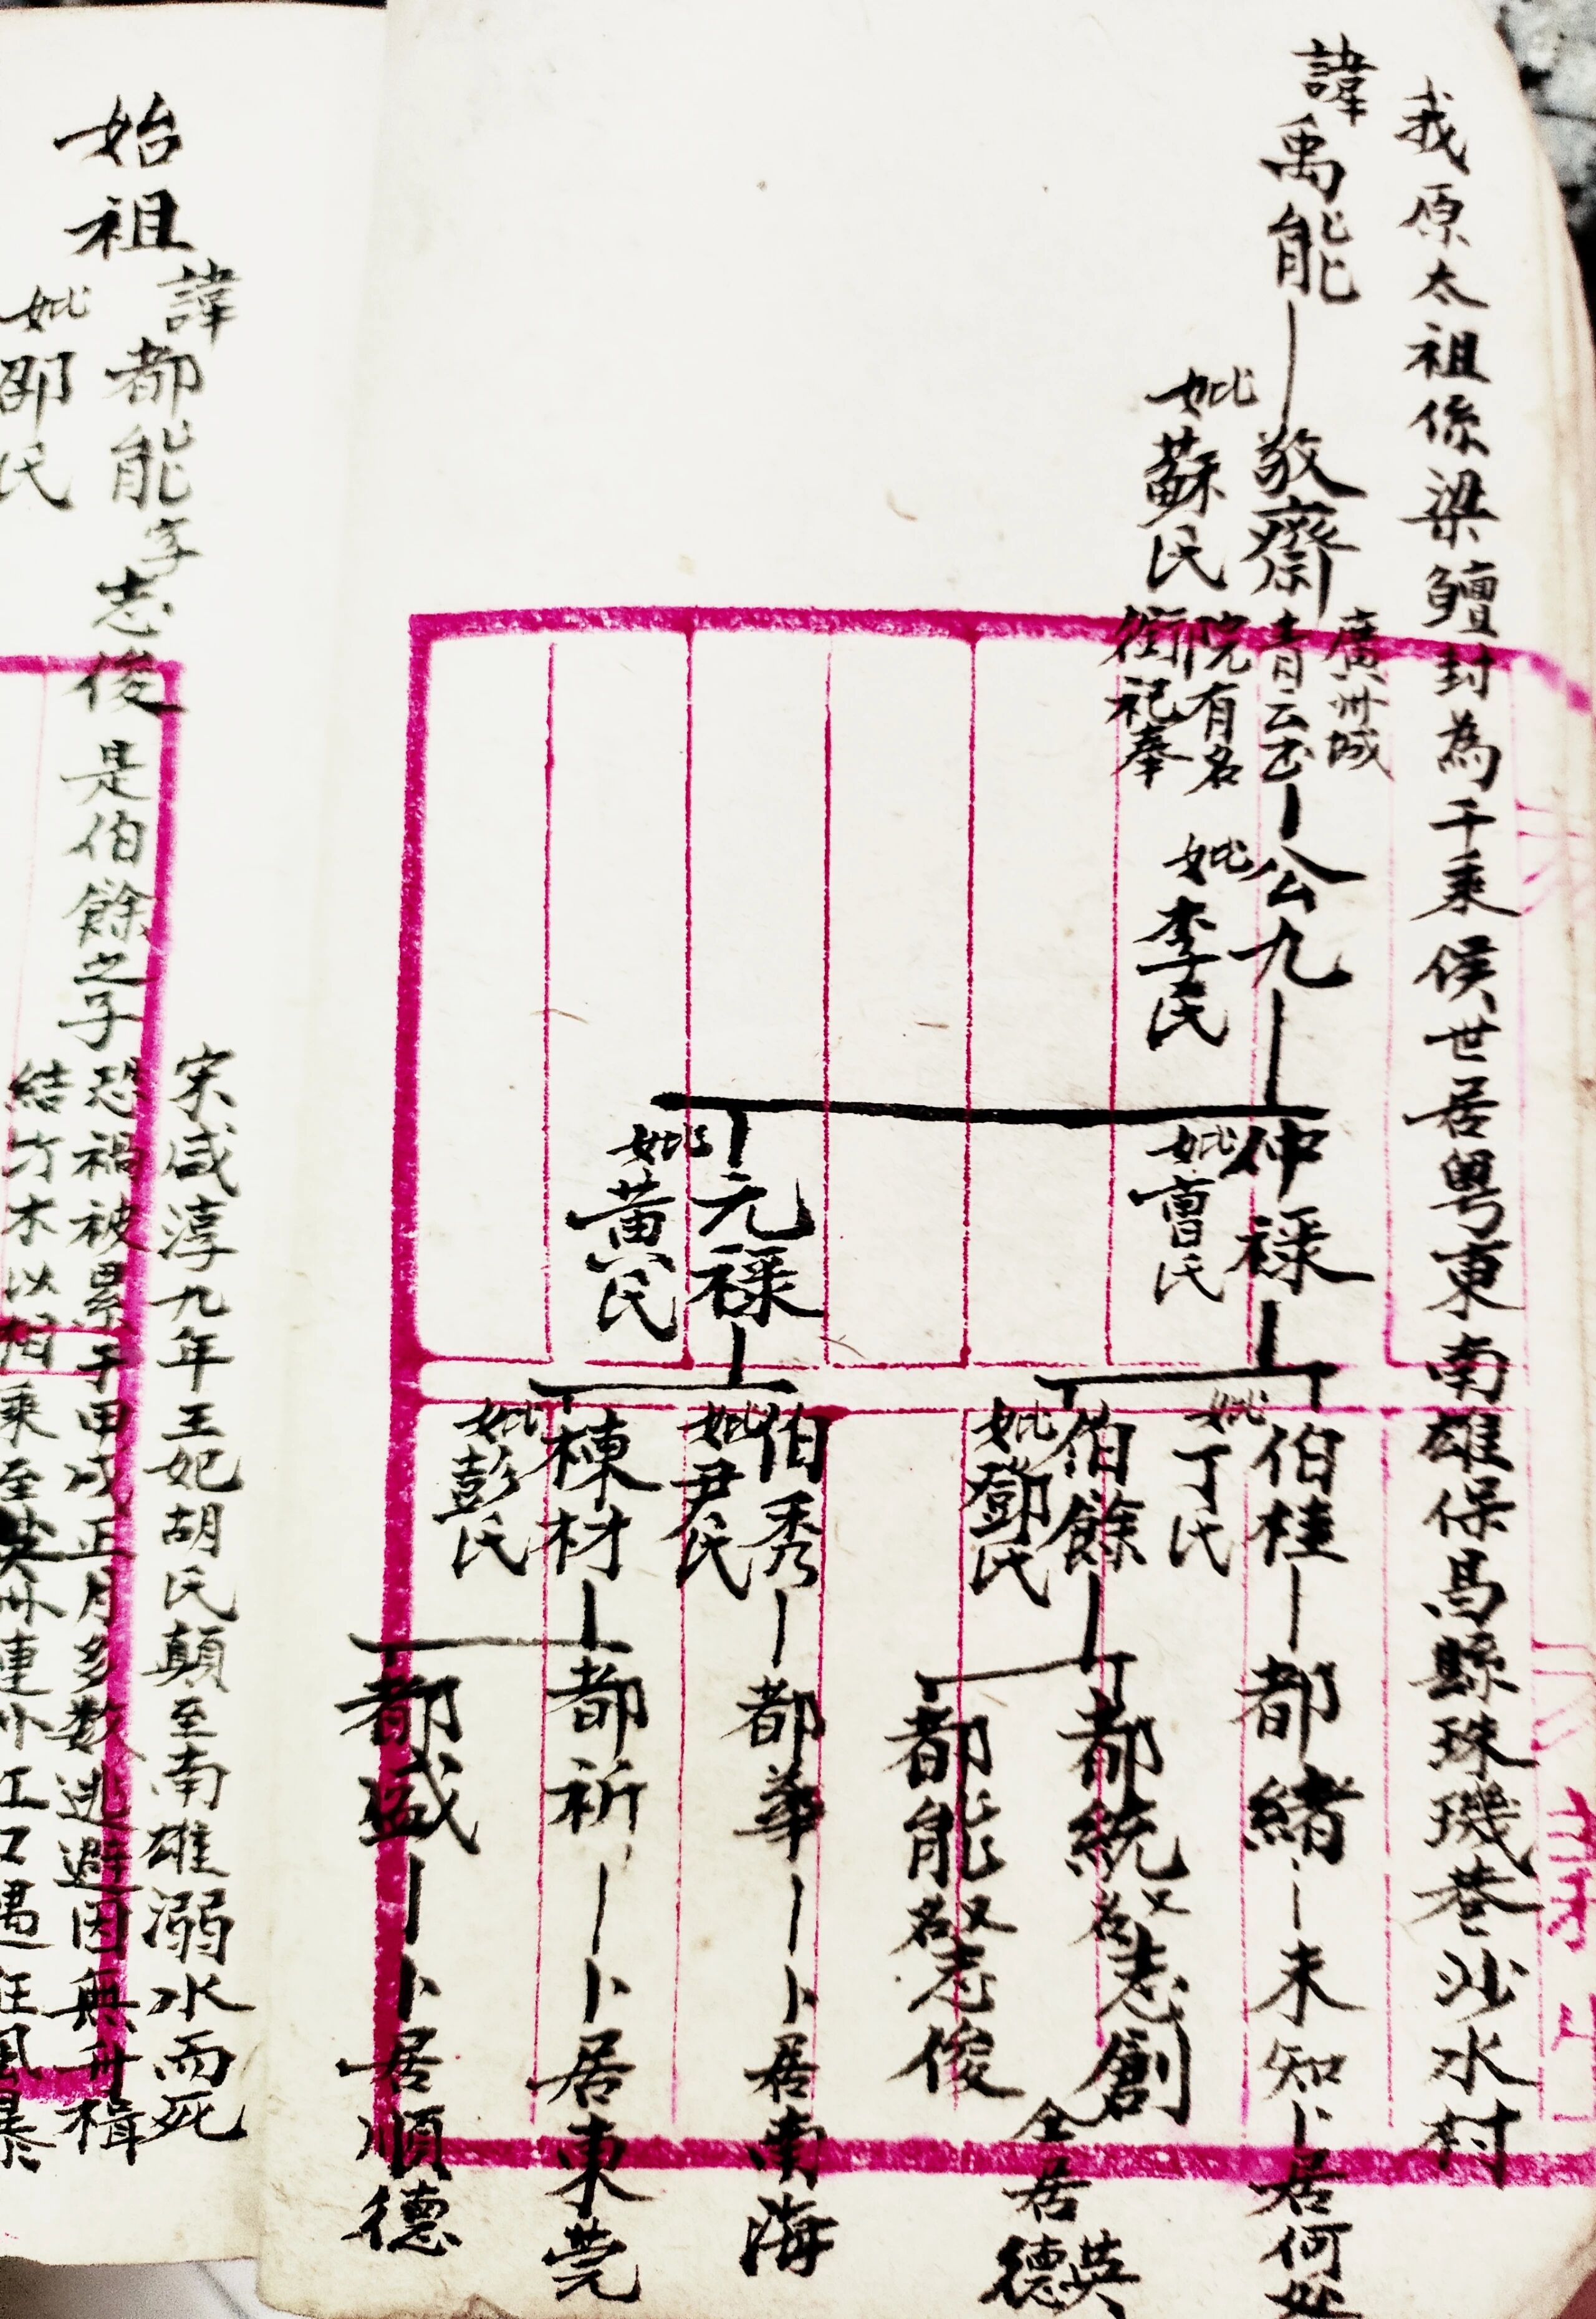 我原太祖係梁鱣封為千乘侯世居粤東南雄保昌縣珠璣巷沙水村
諱禹能
敬齋
妣蘇氏
廣州城
青云書
院有名
街祀奉
公九
妣李氏
仲祿
妣曹氏
元祿
妣黃氏
伯桂
妣丁氏
伯餘
妣鄧氏
伯秀
妣尹氏
棟材
妣彭氏
都緒
未知卜居何处
都統又名志創
都能又名志俊
仝居英德
都華
卜居南海
都祈
卜居東莞
都盛
卜居順德
始祖
諱都能字志俊是伯餘之子
妣邵氏
宋咸淳九年王妃胡氏顛至南雄溺水而死
恐禍被累于甲戌正月多数逃避因無舟楫
結方木以相乘至英州連州江口遇狂風暴